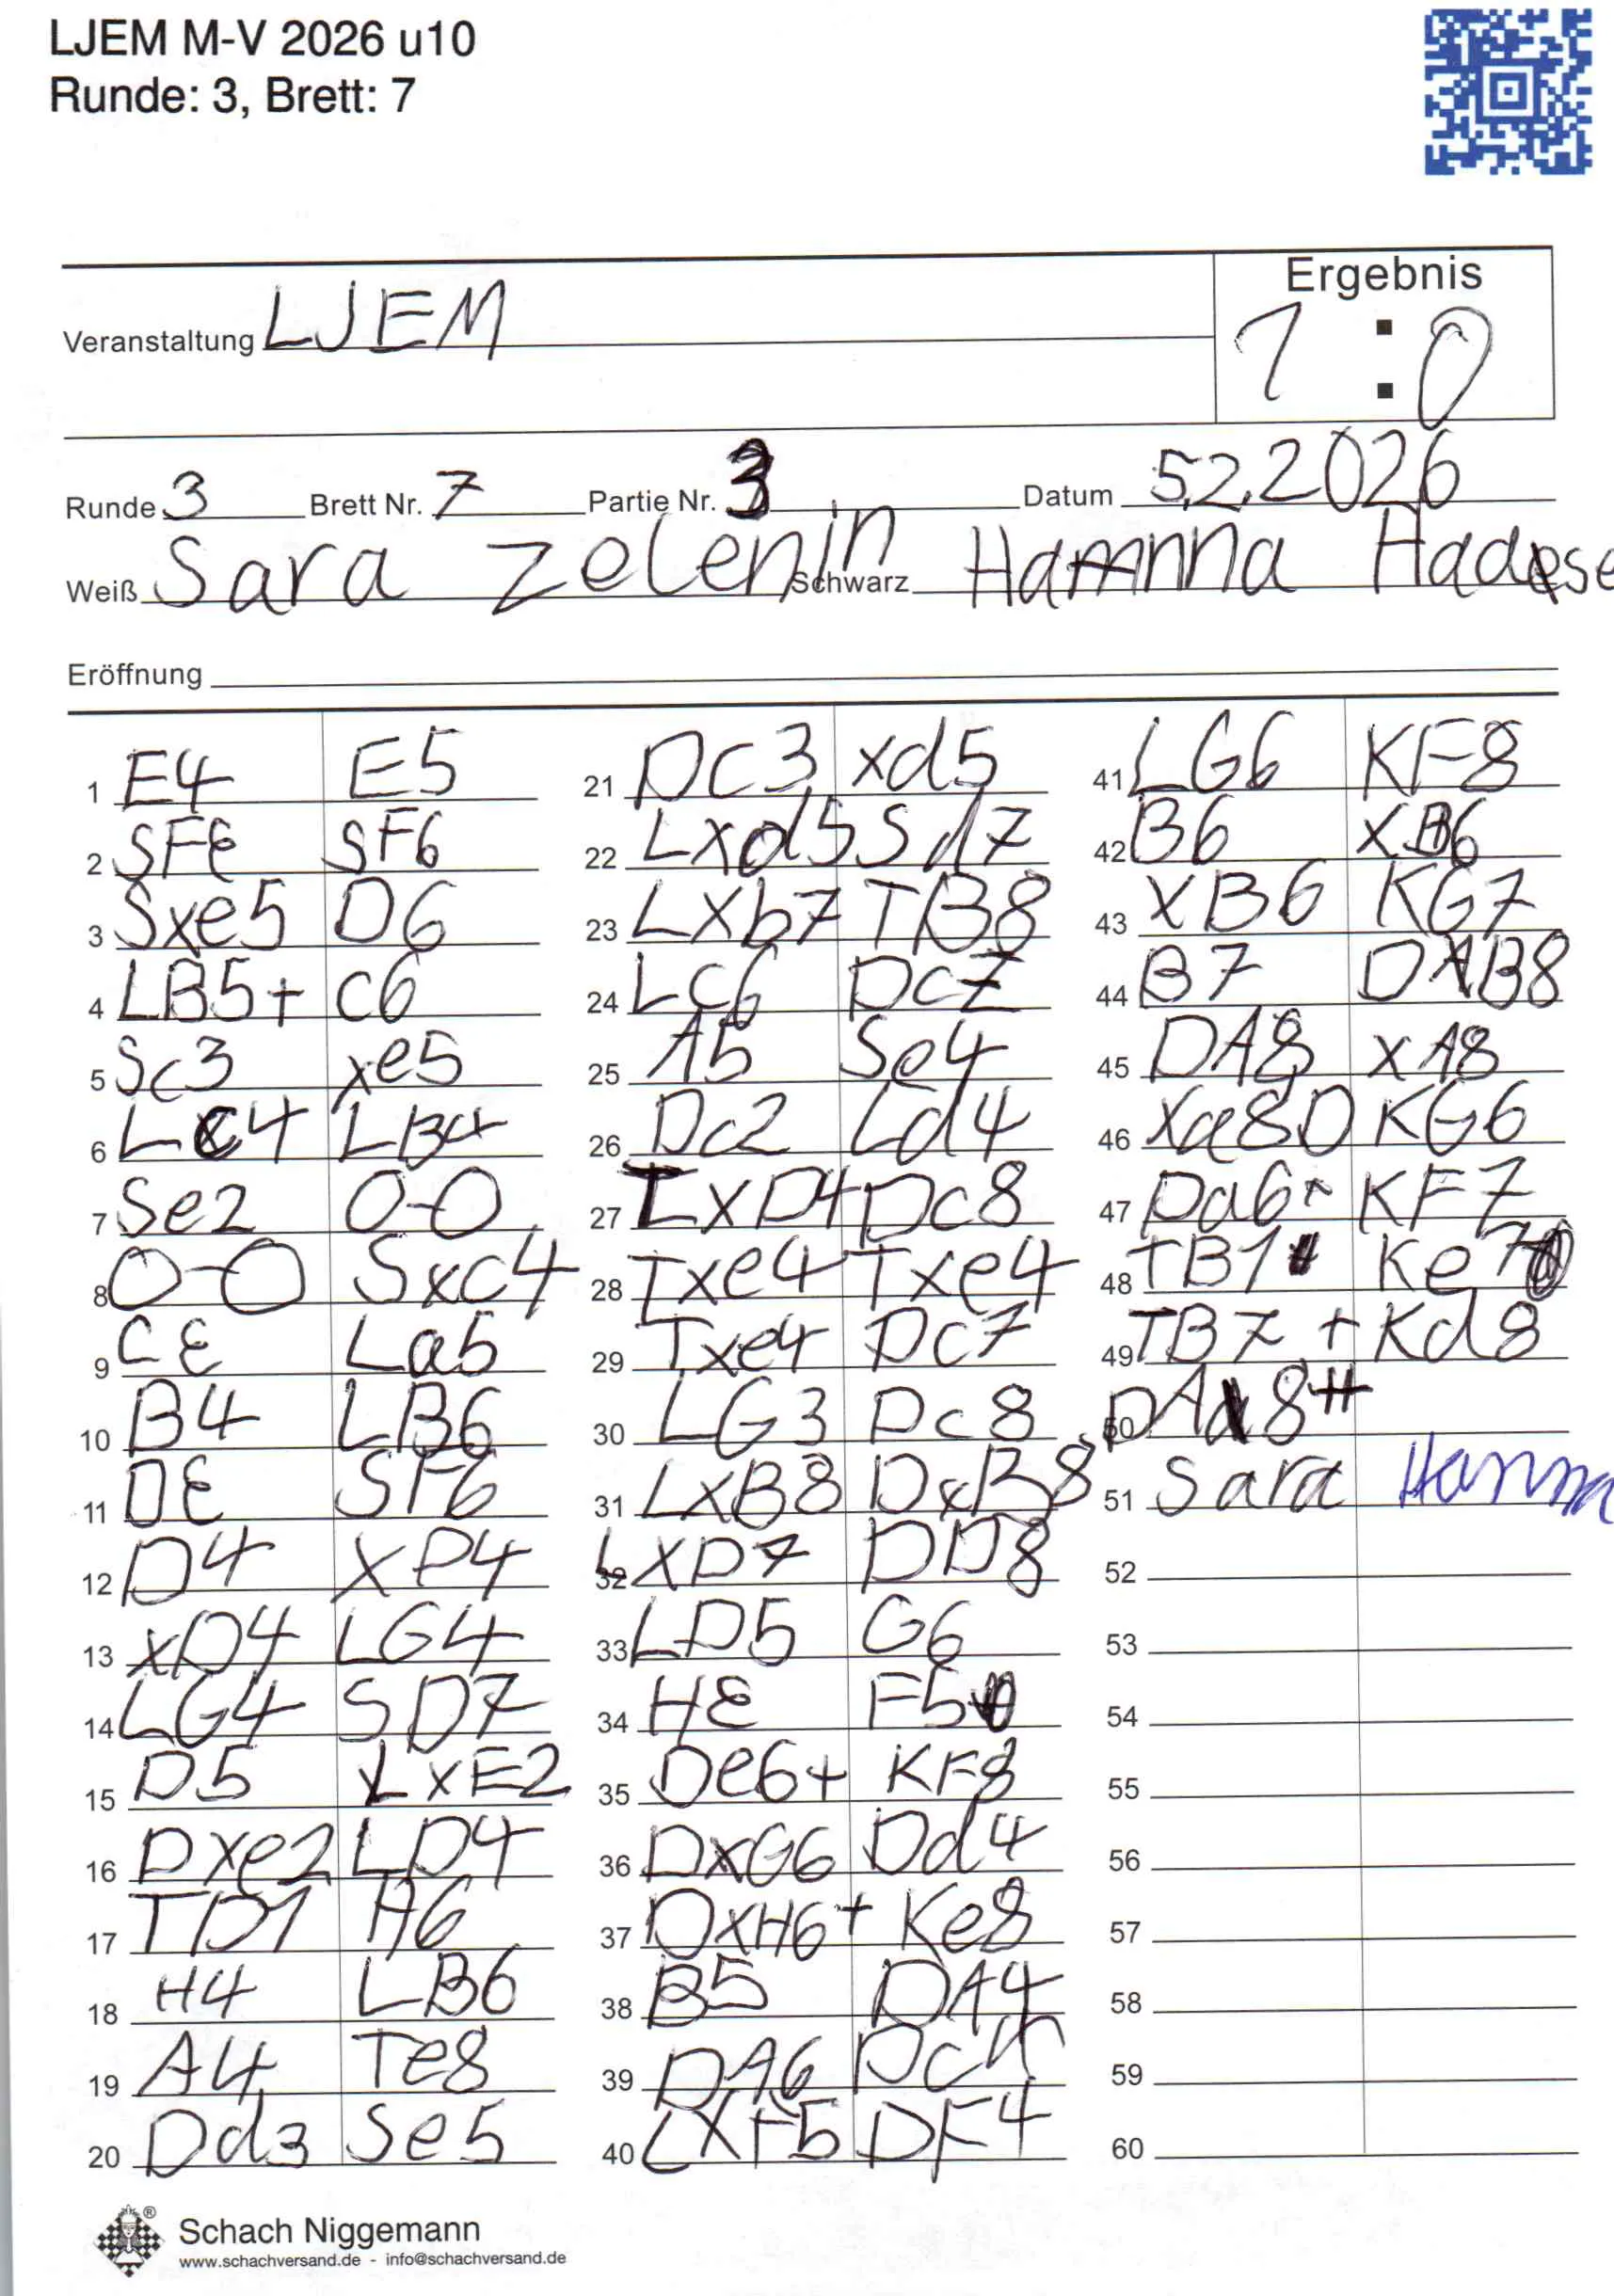 LJEM M-V 2026 u10
Runde: 3, Brett: 7
Ergebnis
Veranstaltung LJEM 1 : 0
Runde 3 Brett Nr. 7 Partie Nr. 3 Datum 5.2.2026
Weiß Sara Zelenin Schwarz
Eröffnung
1 E4 E5
2 SF6 SF6
3 Sxe5 D6
4 LB5+ c6
5 Sc3 xe5
6 Lc4 LB4
7 Se2 0-0
8 0-0 Sxc4
9 C3 La5
10 B4 LB6
11 D3 SF6
12 D4 XD4
13 xD4 LG4
14 LG4 SD7
15 D5 LxE2
16 Dxe2 LD4
17 TD1 H6
18 H4 LB6
19 A4 Te8
20 Dd3 Se5
21 Dc3 xd5
22 Lxd5 Sd7
23 LXb7 TB8
24 Lc6 Dc7
25 A5 Se4
26 Dc2 Ld4
27 TxD4 Dc8
28 Txe4 Txe4
29 Txe4 Dc7
30 LG3 Dc8
31 LXB8 DxB8
32 LXD7 DD8
33 LD5 G6
34 H3 F5
35 De6+ KF8
36 DxG6 Dd4
37 DxH6+ Ke8
38 B5 DA4
39 DA6 Dc4
40 LXF5 DF4
41 LG6 KF8
42 B6 XB6
43 XB6 KG7
44 B7 DXB8
45 DA8 XA8
46 Xa8D KG6
47 Da6+ KF7
48 TB1 Ke7
49 TB7+ Kd8
50 DA8#
51 Sara Hanna
52
53
54
55
56
57
58
59
60
Schach Niggemann
www.schachversand.de - info@schachversand.de